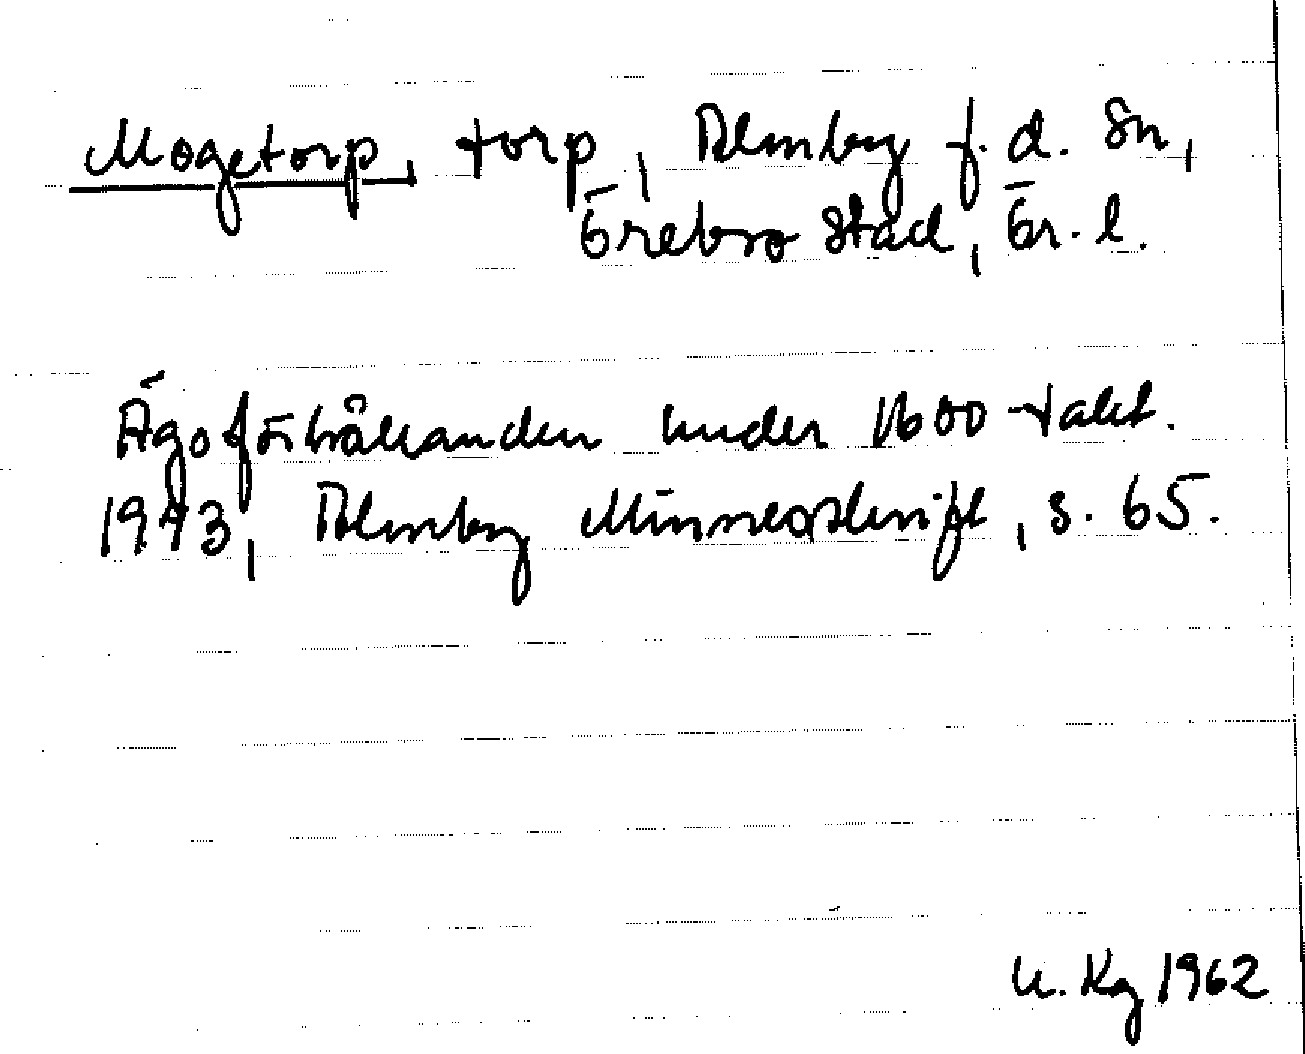 Mogetorp, torp, Almby f.d. sn,
Örebro stad, Ör. l.
Ägoförhållanden under 1600-talet.
1943, Almby Minnesskrift, s. 65.
U. Kg 1962